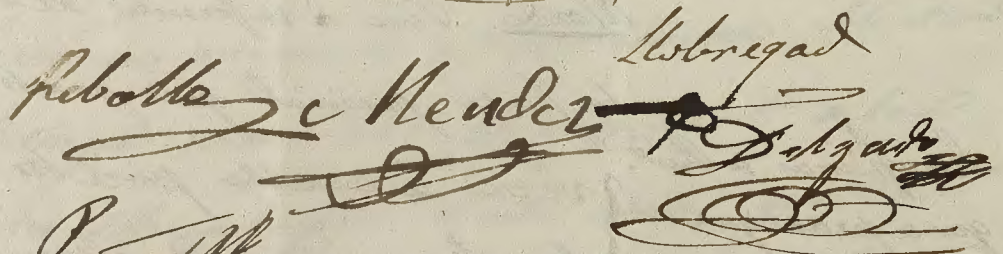 Rebolle
Mendez
Llobregad
Delgado